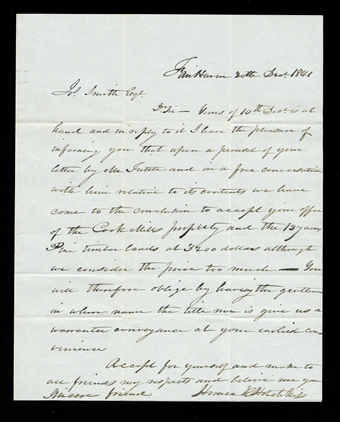 Fair Haven 20th Decr. 1841
Jos. Smith Esqr.
Dr Sir — Yours of 10th Decr is at
hand and in reply to it I have the pleasure of
informing you that upon a perusal of your
letter by Mr Tuttle and on a free conversation
with him relative to its contents we have
come to the conclusion to accept your offer
of the Cook Mills property and the
Pine timber lands at 3200 dollars although
we consider the price too much — You
will therefore oblige by having the gentleman
in whose name the title now is give us a
warrantee conveyance at your earliest con-
venience
Accept for yourself and make to
all friends my respects and believe me your
Sincere friend Horace R Hotchkiss